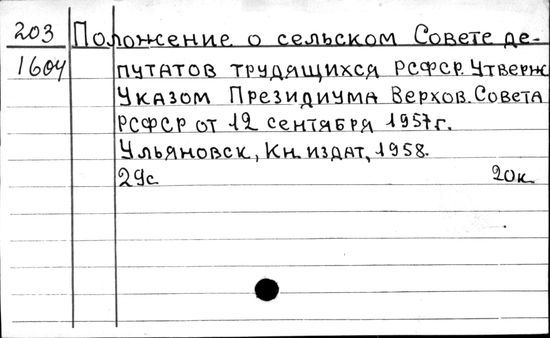 203 Положение о сельском Совете де-
1604 путатов трудящихся РСФСР. Утвержд
Указом Президиума Верхов. Совета
РСФСР от 12 сентября 1957г.
Ульяновск, Кн. издат, 1958.
29с 20к